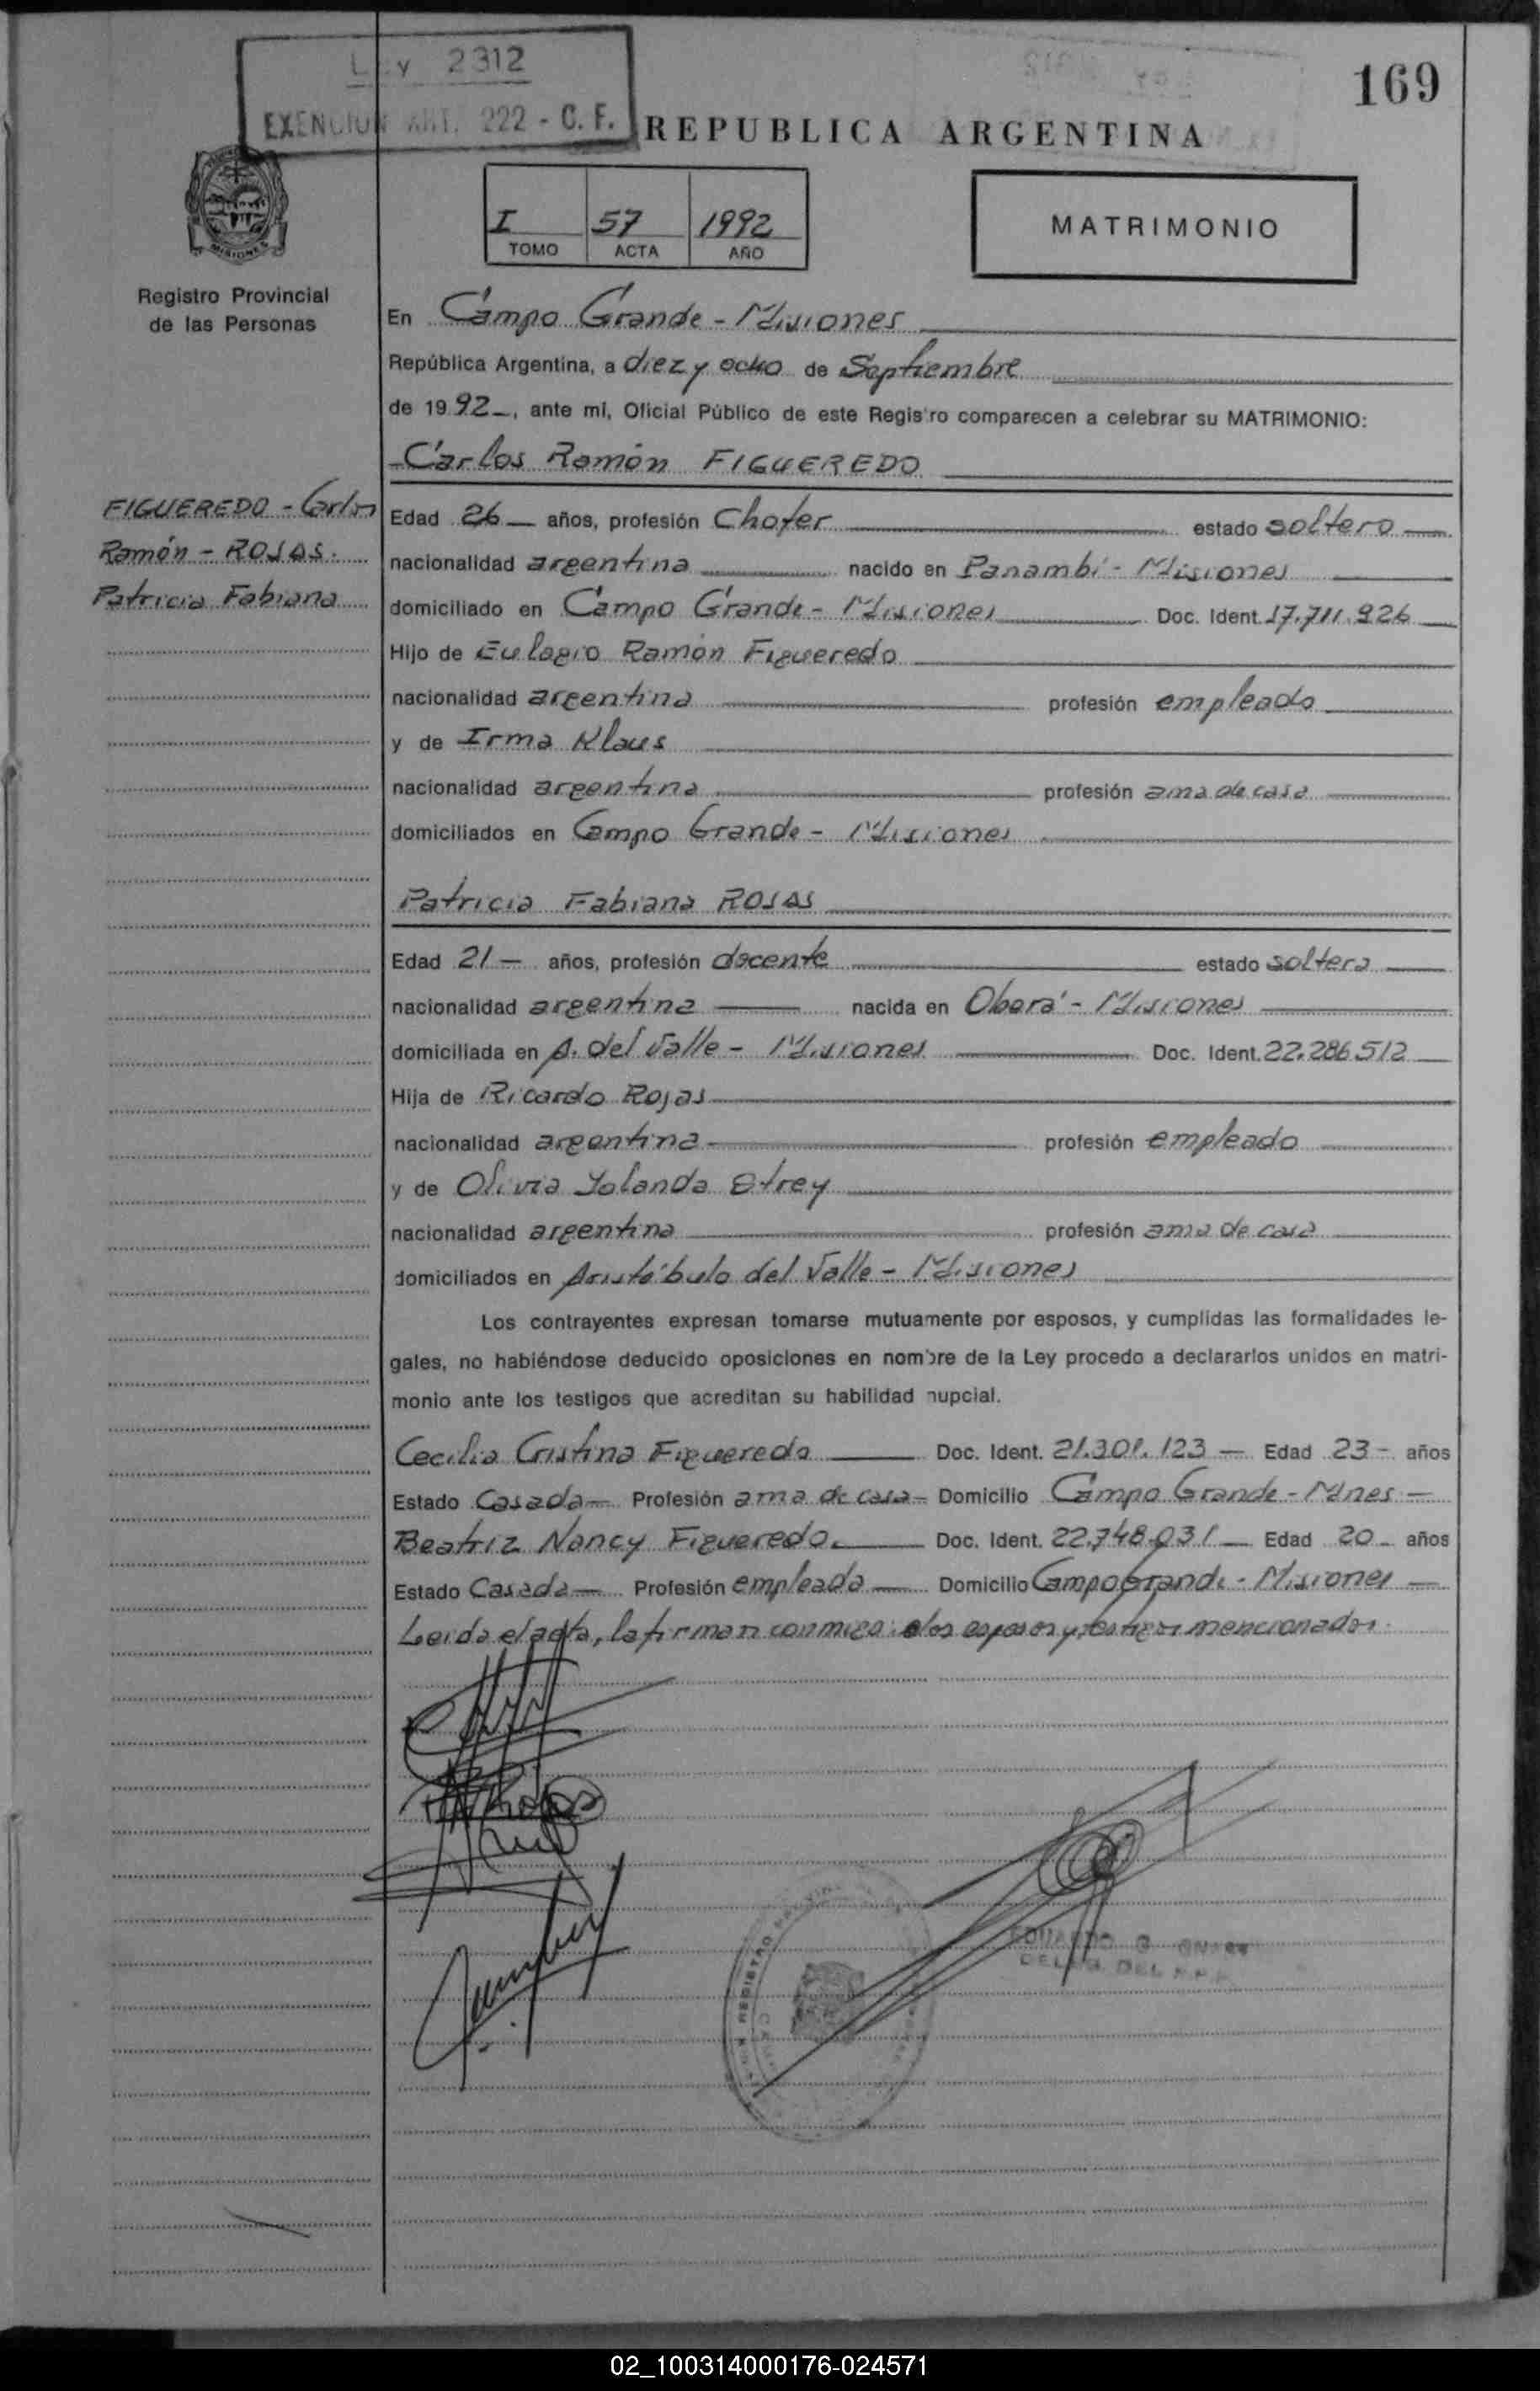 169
Ley 2312
EXENCION ART. 222 - C. F.
REPUBLICA ARGENTINA
MISIONES
I 57 1992
TOMO ACTA AÑO
MATRIMONIO
Registro Provincial
de las Personas
En Campo Grande - Misiones
República Argentina, a diez y ocho de Septiembre
de 1992, ante mí, Oficial Público de este Registro comparecen a celebrar su MATRIMONIO:
Carlos Ramón FIGUEREDO
FIGUEREDO - Carlos
Ramón - ROJAS.
Patricia Fabiana
Edad 26 años, profesión Chofer estado soltero
nacionalidad argentina nacido en Panambí - Misiones
domiciliado en Campo Grande - Misiones Doc. Ident. 17.711.926
Hijo de Eulogio Ramón Figueredo
nacionalidad argentina profesión empleado
y de Irma Klaus
nacionalidad argentina profesión ama de casa
domiciliados en Campo Grande - Misiones
Patricia Fabiana ROJAS
Edad 21 años, profesión docente estado soltera
nacionalidad argentina nacida en Oberá - Misiones
domiciliada en A. del Valle - Misiones Doc. Ident. 22.286.512
Hija de Ricardo Rojas
nacionalidad argentina profesión empleado
y de Olivia Yolanda Strey
nacionalidad argentina profesión ama de casa
domiciliados en Aristóbulo del Valle - Misiones
Los contrayentes expresan tomarse mutuamente por esposos, y cumplidas las formalidades le-
gales, no habiéndose deducido oposiciones en nombre de la Ley procedo a declararlos unidos en matri-
monio ante los testigos que acreditan su habilidad nupcial.
Cecilia Cristina Figueredo Doc. Ident. 21.301.123 Edad 23 años
Estado Casada Profesión ama de casa Domicilio Campo Grande - Mnes
Beatriz Nancy Figueredo. Doc. Ident. 22.748.031 Edad 20 años
Estado Casada Profesión empleada Domicilio Campo Grande - Misiones
Leída el acta, la firman conmigo: los esposos y testigos mencionados.
02_100314000176-024571